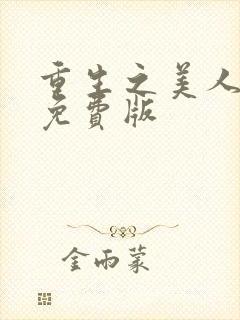 重生之美人
免費版
金雨蒙